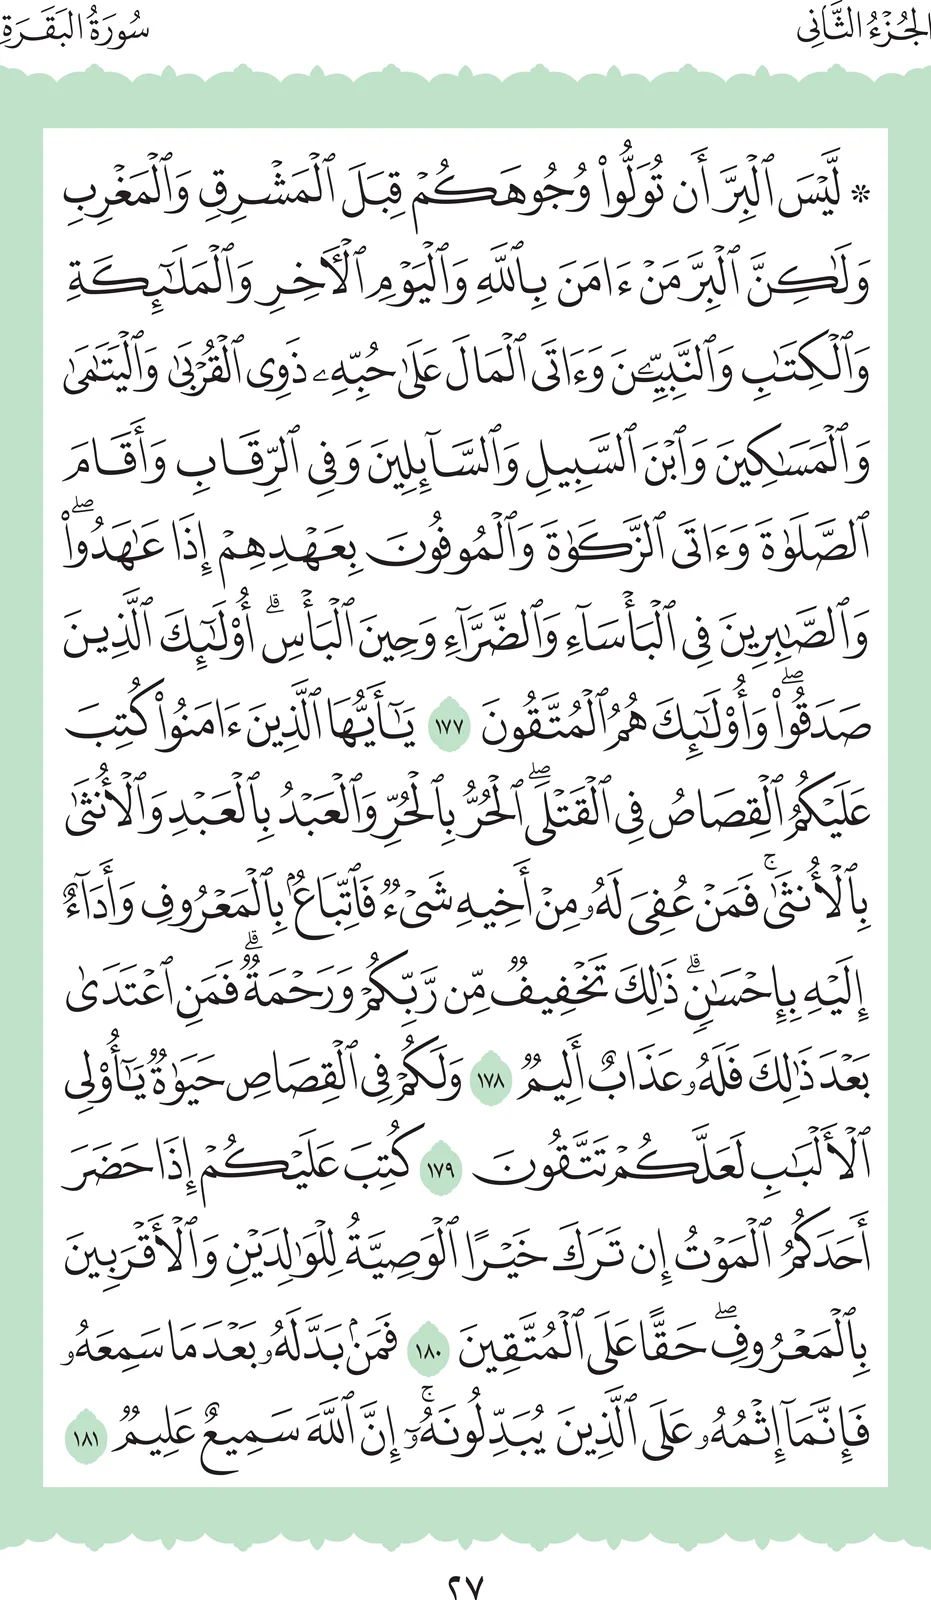 الجُزْءُ الثَّانِي
سُورَةُ البَقَرَةِ
* لَّيْسَ ٱلْبِرَّ أَن تُوَلُّوا۟ وُجُوهَكُمْ قِبَلَ ٱلْمَشْرِقِ وَٱلْمَغْرِبِ
وَلَٰكِنَّ ٱلْبِرَّ مَنْ ءَامَنَ بِٱللَّهِ وَٱلْيَوْمِ ٱلْأَخِرِ وَٱلْمَلَٰٓئِكَةِ
وَٱلْكِتَٰبِ وَٱلنَّبِيِّۦنَ وَءَاتَى ٱلْمَالَ عَلَىٰ حُبِّهِۦ ذَوِى ٱلْقُرْبَىٰ وَٱلْيَتَٰمَىٰ
وَٱلْمَسَٰكِينَ وَٱبْنَ ٱلسَّبِيلِ وَٱلسَّآئِلِينَ وَفِى ٱلرِّقَابِ وَأَقَامَ
ٱلصَّلَوٰةَ وَءَاتَى ٱلزَّكَوٰةَ وَٱلْمُوفُونَ بِعَهْدِهِمْ إِذَا عَٰهَدُوا۟ۖ
وَٱلصَّٰبِرِينَ فِى ٱلْبَأْسَآءِ وَٱلضَّرَّآءِ وَحِينَ ٱلْبَأْسِۗ أُو۟لَٰٓئِكَ ٱلَّذِينَ
صَدَقُوا۟ۖ وَأُو۟لَٰٓئِكَ هُمُ ٱلْمُتَّقُونَ ١٧٧ يَٰٓأَيُّهَا ٱلَّذِينَ ءَامَنُوا۟ كُتِبَ
عَلَيْكُمُ ٱلْقِصَاصُ فِى ٱلْقَتْلَىۖ ٱلْحُرُّ بِٱلْحُرِّ وَٱلْعَبْدُ بِٱلْعَبْدِ وَٱلْأُنثَىٰ
بِٱلْأُنثَىٰۚ فَمَنْ عُفِىَ لَهُۥ مِنْ أَخِيهِ شَىْءٌ فَٱتِّبَاعٌۢ بِٱلْمَعْرُوفِ وَأَدَآءٌ
إِلَيْهِ بِإِحْسَٰنٍۗ ذَٰلِكَ تَخْفِيفٌ مِّن رَّبِّكُمْ وَرَحْمَةٌۗ فَمَنِ ٱعْتَدَىٰ
بَعْدَ ذَٰلِكَ فَلَهُۥ عَذَابٌ أَلِيمٌ ١٧٨ وَلَكُمْ فِى ٱلْقِصَاصِ حَيَوٰةٌ يَٰٓأُو۟لِى
ٱلْأَلْبَٰبِ لَعَلَّكُمْ تَتَّقُونَ ١٧٩ كُتِبَ عَلَيْكُمْ إِذَا حَضَرَ
أَحَدَكُمُ ٱلْمَوْتُ إِن تَرَكَ خَيْرًا ٱلْوَصِيَّةُ لِلْوَٰلِدَيْنِ وَٱلْأَقْرَبِينَ
بِٱلْمَعْرُوفِۖ حَقًّا عَلَى ٱلْمُتَّقِينَ ١٨٠ فَمَنۢ بَدَّلَهُۥ بَعْدَ مَا سَمِعَهُۥ
فَإِنَّمَآ إِثْمُهُۥ عَلَى ٱلَّذِينَ يُبَدِّلُونَهُۥٓۚ إِنَّ ٱللَّهَ سَمِيعٌ عَلِيمٌ ١٨١
٢٧